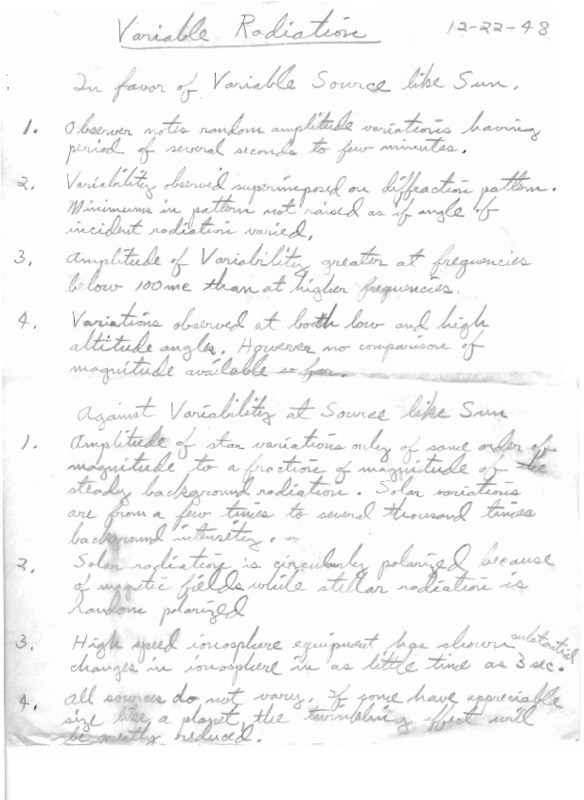 Variable Radiation 12-22-48
In favor of Variable Source like Sun.
1. Observer notes random amplitude variations having
period of several seconds to few minutes.
2. Variability observed superimposed on diffraction pattern.
Minimums in pattern not raised as if angle of
incident radiation varied.
3. Amplitude of Variability greater at frequencies
below 100mc than at higher frequencies.
4. Variations observed at both low and high
altitude angles. However no comparison of
magnitude available so far.
Against Variability at Source like Sun
1. Amplitude of star variations only of same order of
magnitude to a fraction of magnitude of the
steady background radiation. Solar variations
are from a few times to several thousand times
background intensity.
2. Solar radiation is circularly polarized because
of magnetic fields while stellar radiation is
random polarized
3. High speed ionosphere equipment has shown substantial
changes in ionosphere in as little time as 3 sec.
4. All sources do not vary. If some have appreciable
size like a planet, the twinkling effect will
be greatly reduced.